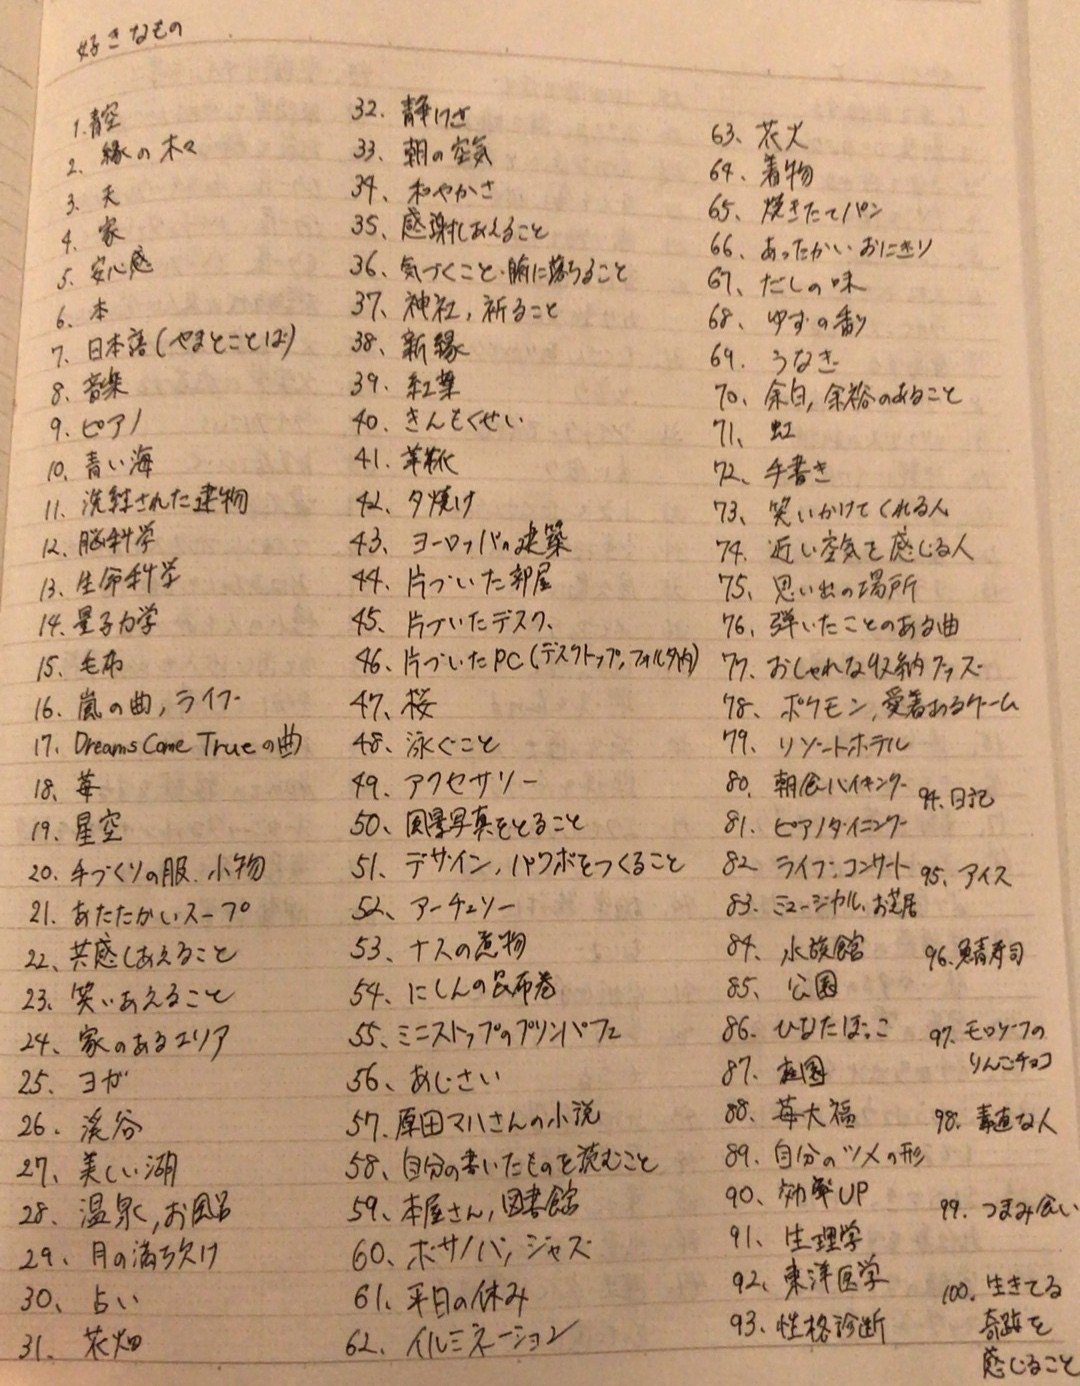 好きなもの
1. 青空
2. 緑の木々
3. 天
4. 家
5. 安心感
6. 本
7. 日本語(やまとことば)
8. 音楽
9. ピアノ
10. 青い海
11. 洗練された建物
12. 脳科学
13. 生命科学
14. 量子力学
15. 毛布
16. 嵐の曲, ライブ
17. Dreams Come Trueの曲
18. 苺
19. 星空
20. 手づくりの服、小物
21. あたたかいスープ
22. 共感しあえること
23. 笑いあえること
24. 家のあるエリア
25. ヨガ
26. 渓谷
27. 美しい湖
28. 温泉, お風呂
29. 月の満ち欠け
30. 占い
31. 花畑
32. 静けさ
33. 朝の空気
34. 和やかさ
35. 感謝しあえること
36. 気づくこと・腑に落ちること
37. 神社, 祈ること
38. 新緑
39. 紅葉
40. きんもくせい
41. 革靴
42. 夕焼け
43. ヨーロッパの建築
44. 片づいた部屋
45. 片づいたデスク
46. 片づいたPC(デスクトップ, フォルダ内)
47. 桜
48. 泳ぐこと
49. アクセサリー
50. 風景写真をとること
51. デザイン, パワポをつくること
52. アーチェリー
53. ナスの煮物
54. にしんの昆布巻
55. ミニストップのプリンパフェ
56. あじさい
57. 原田マハさんの小説
58. 自分の書いたものを読むこと
59. 本屋さん, 図書館
60. ボサノバ, ジャズ
61. 平日の休み
62. イルミネーション
63. 花火
64. 着物
65. 焼きたてパン
66. あったかいおにぎり
67. だしの味
68. ゆずの香り
69. うなぎ
70. 余白, 余裕のあること
71. 虹
72. 手書き
73. 笑いかけてくれる人
74. 近い空気を感じる人
75. 思い出の場所
76. 弾いたことのある曲
77. おしゃれな収納グッズ
78. ポケモン, 愛着あるゲーム
79. リゾートホテル
80. 朝食バイキング
81. ピアノダイニング
82. ライブ・コンサート
83. ミュージカル、お芝居
84. 水族館
85. 公園
86. ひなたぼっこ
87. 庭園
88. 苺大福
89. 自分のツメの形
90. 効率UP
91. 生理学
92. 東洋医学
93. 性格診断
94. 日記
95. アイス
96. 鯖寿司
97. モロゾフの
りんごチョコ
98. 素直な人
99. つまみ食い
100. 生きてる
奇跡を
感じること